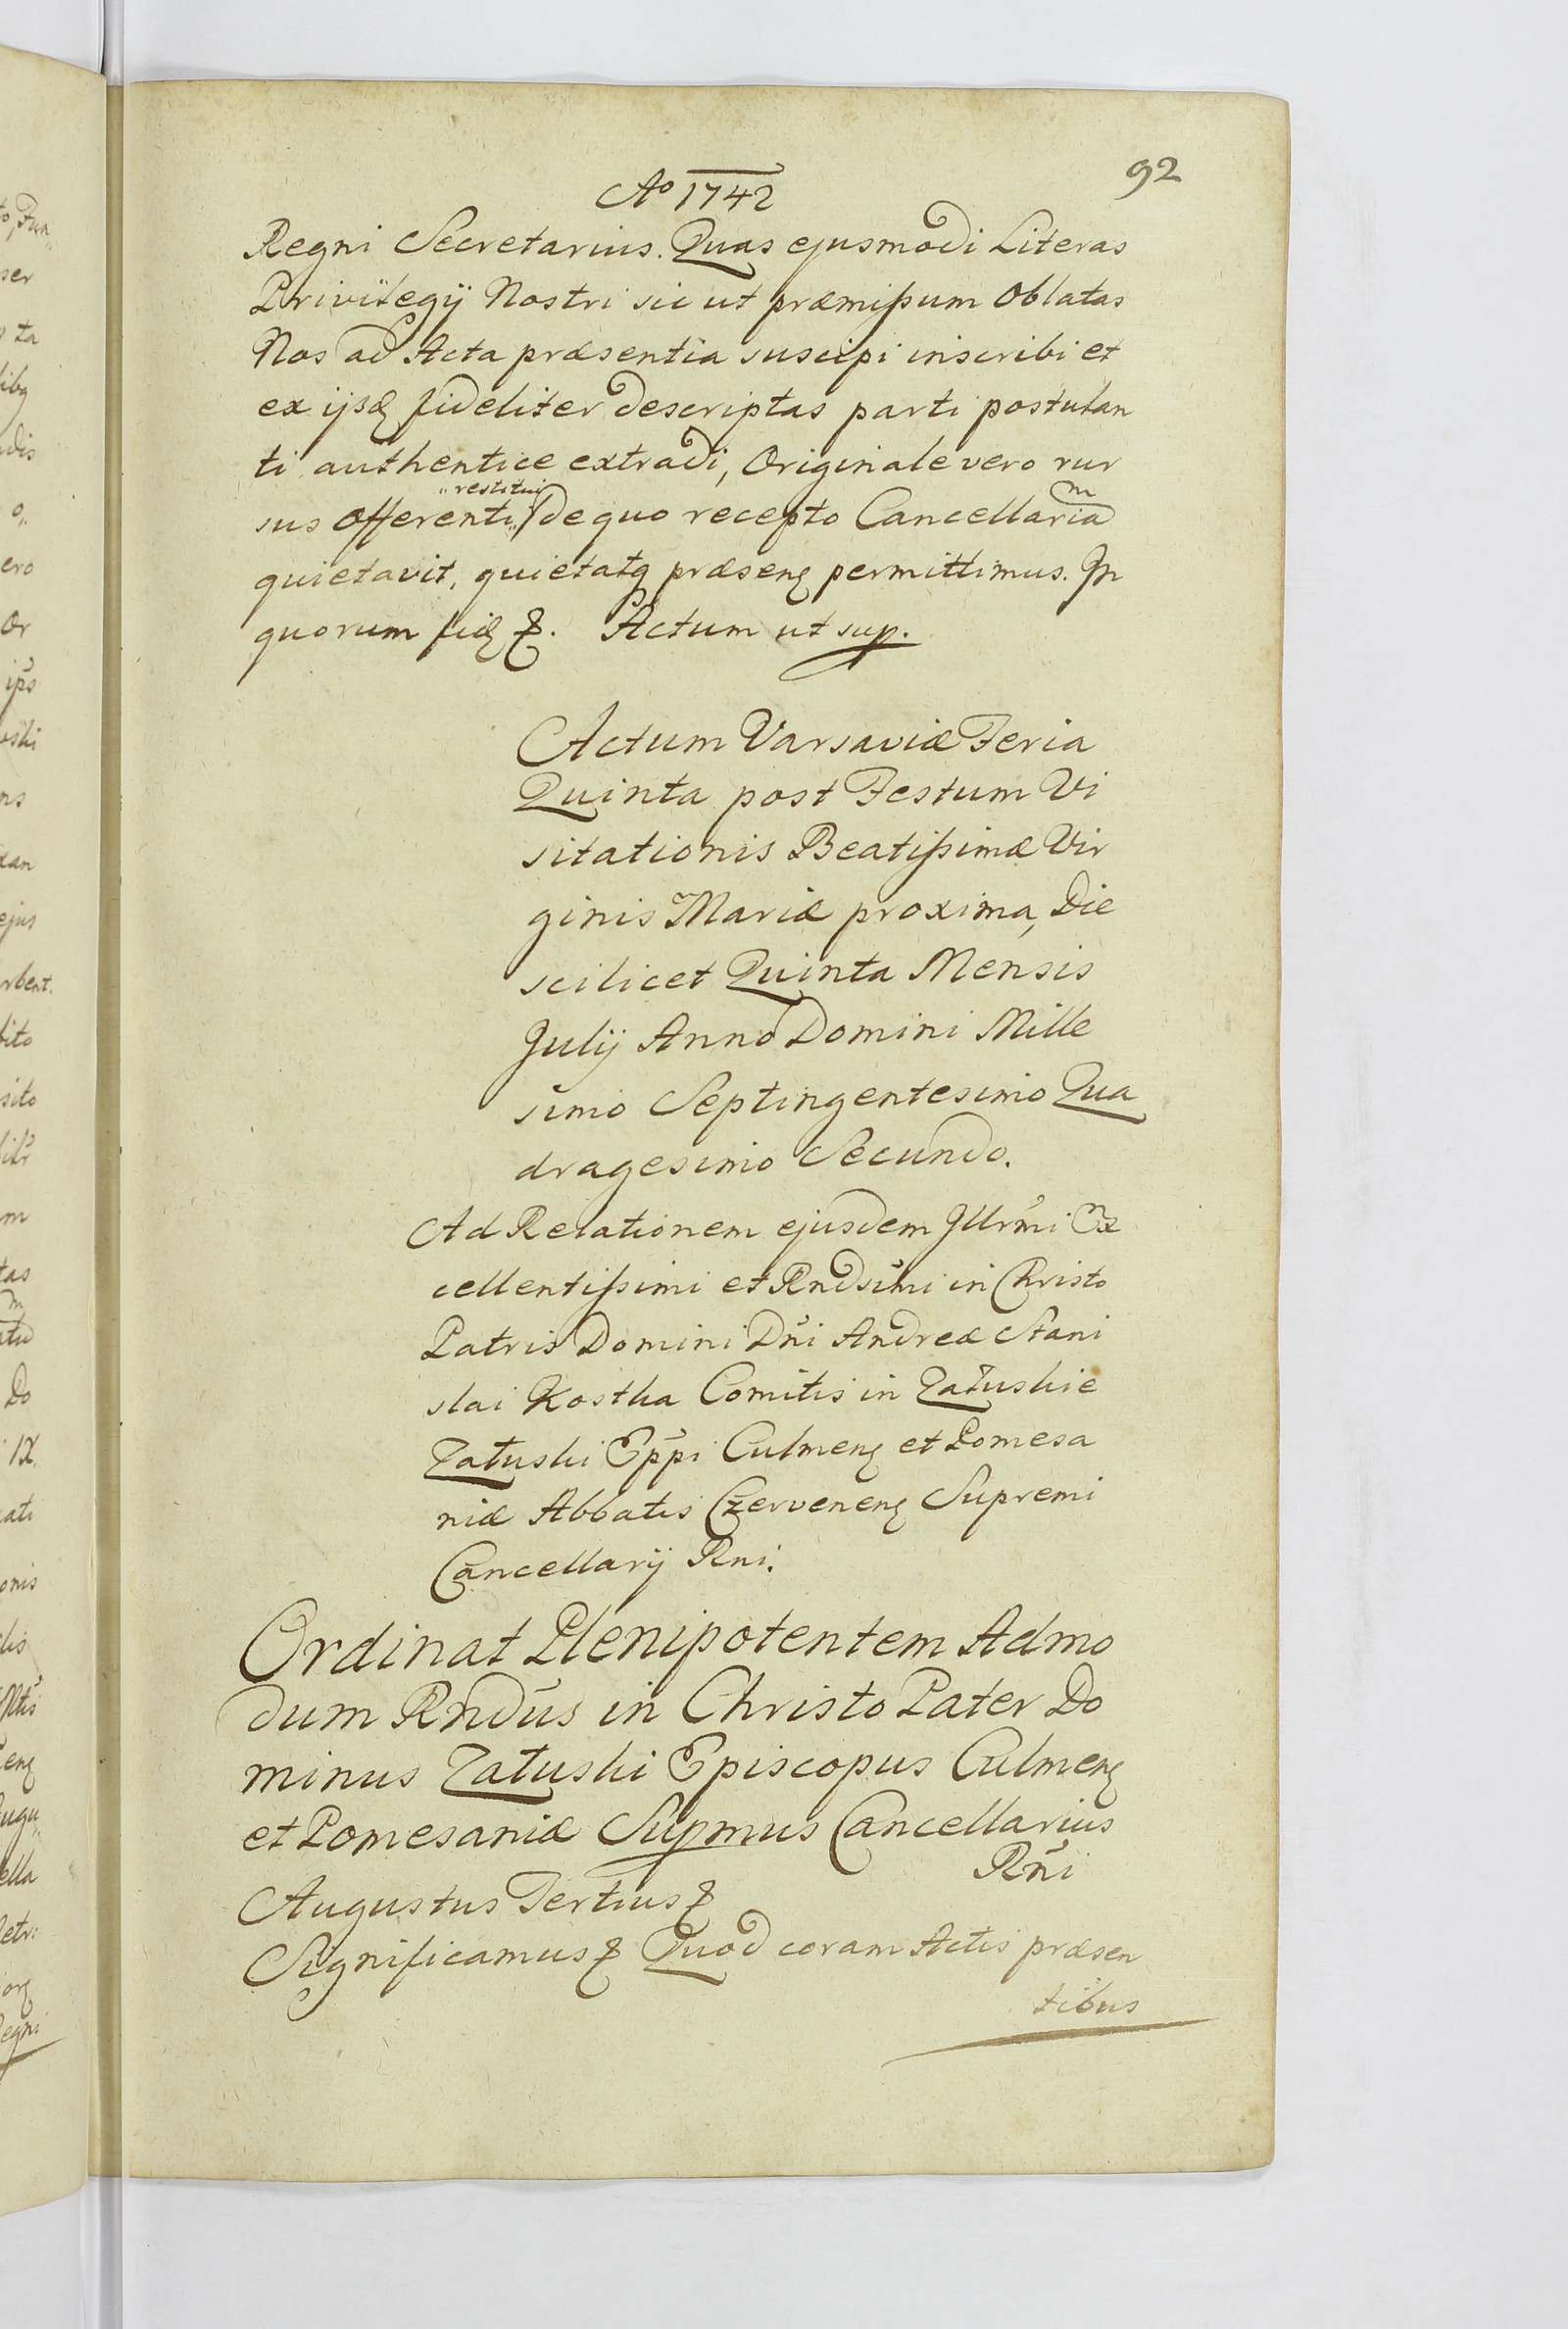 92
Ao 1742
Regni Secretarius. Quas ejusmodi Literas
Privilegij Nostri sic ut præmissum oblatas
Nos ad Acta præsentia suscipi inscribi et
ex ijsd fideliter descriptas parti postulan
ti authentice extradi, Originale vero rur
sus offerenti restitui de quo recepto Cancellariam
quietavit, quietatq præsenę permittimus. In
quorum fidę &. Actum ut sup.
Actum Varsaviæ Feria
Quinta post Festum Vi
sitationis Beatissimæ Vir
ginis Mariæ proxima, Die
scilicet Quinta Mensis
Julij Anno Domini Mille
simo Septingentesimo Qua
dragesimo Secundo.
Ad Relationem ejusdem Illrmi Ex
cellentissimi et Rndsimi in Christo
Patris Domini Dni Andreæ Stani
slai Kostka Comitis in Załuskie
Załuski Eppi Culmenę et Pomesa
niæ Abbatis Czervenenę Supremi
Cancellarij Rni.
Ordinat Plenipotentem Admo
dum Rndus in Christo Pater Do
minus Załuski Episcopus Culmenę
et Pomesaniæ Supmus Cancellarius
Rni
Augustus Tertius &
Significamus & Quod coram Actis præsen
tibus